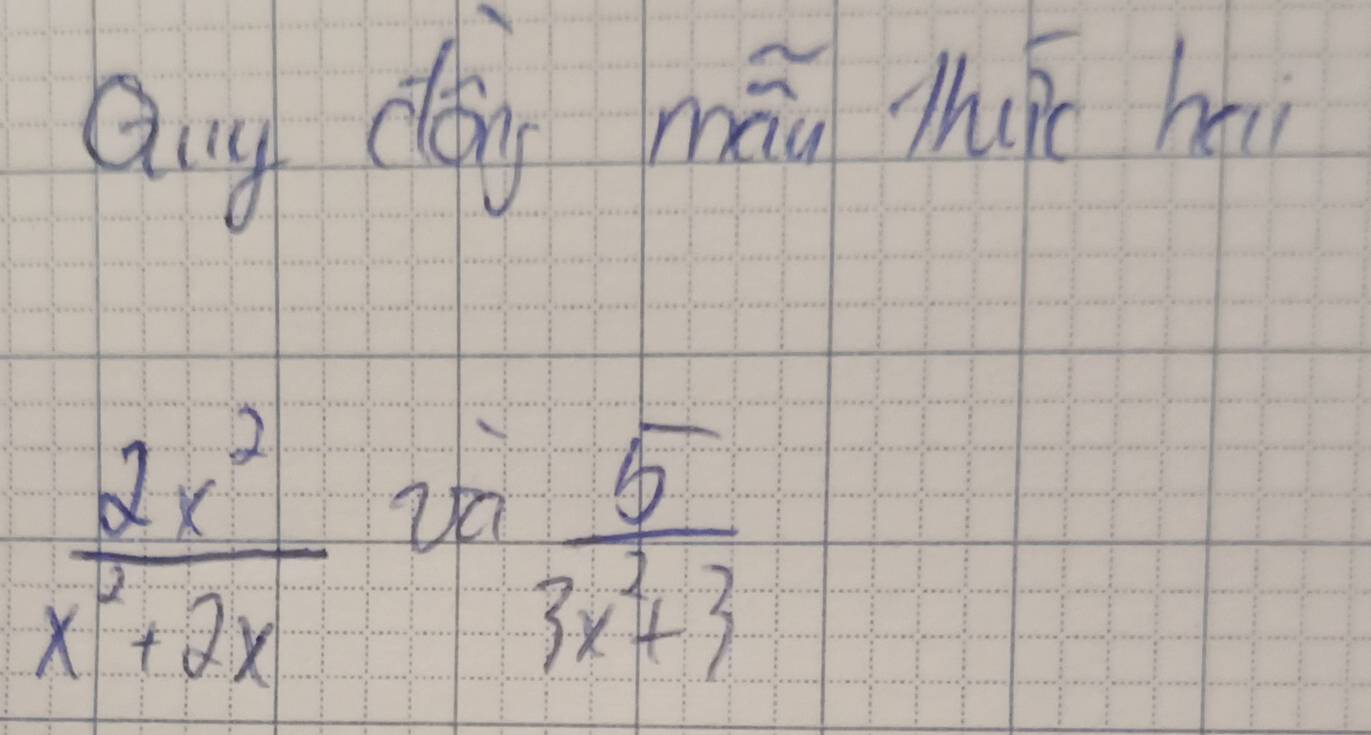 Quy đồng mẫu thức hai
2x²/x²+2x và 5/3x²+3